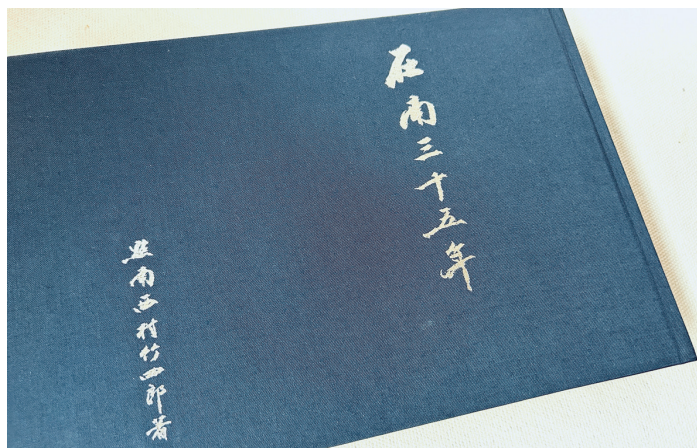 在南三十五年
南西村竹四郎著